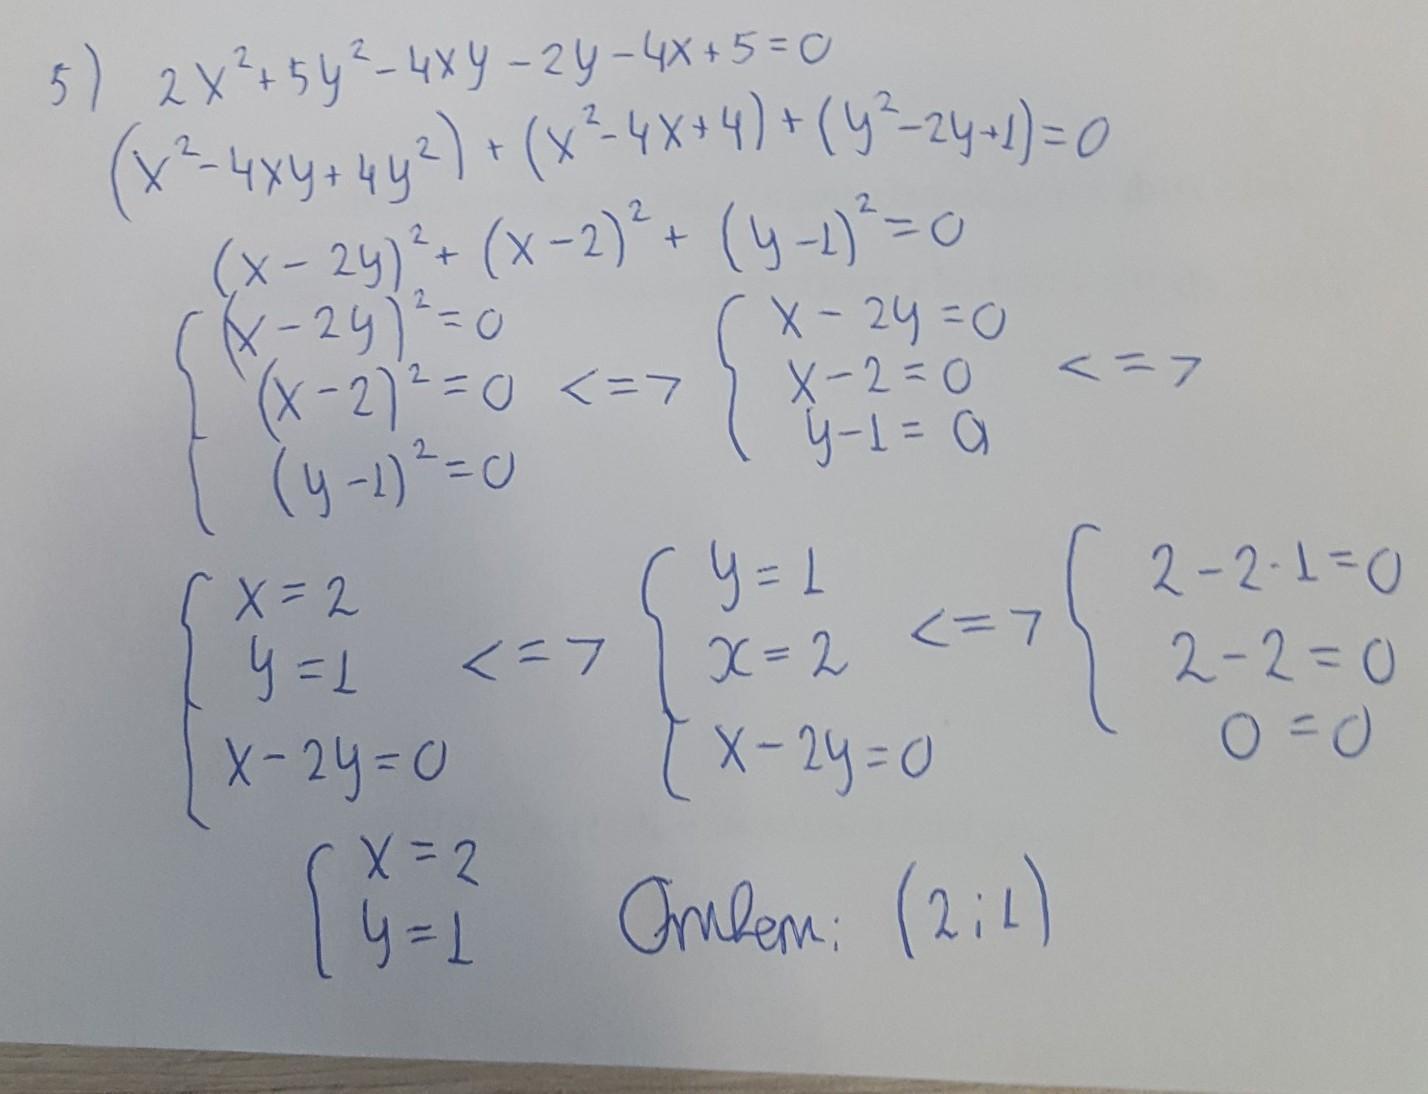 5) 2x²+5y²-4xy-2y-4x+5=0
(x²-4xy+4y²)+(x²-4x+4)+(y²-2y+1)=0
(x-2y)²+(x-2)²+(y-1)²=0
{ (x-2y)²=0 { x-2y=0
(x-2)²=0 <=> x-2=0 <=>
(y-1)²=0 y-1=0
{ x=2 { y=1 { 2-2·1=0
y=1 <=> x=2 <=> 2-2=0
x-2y=0 x-2y=0 0=0
{ x=2
y=1 Ответ: (2;1)